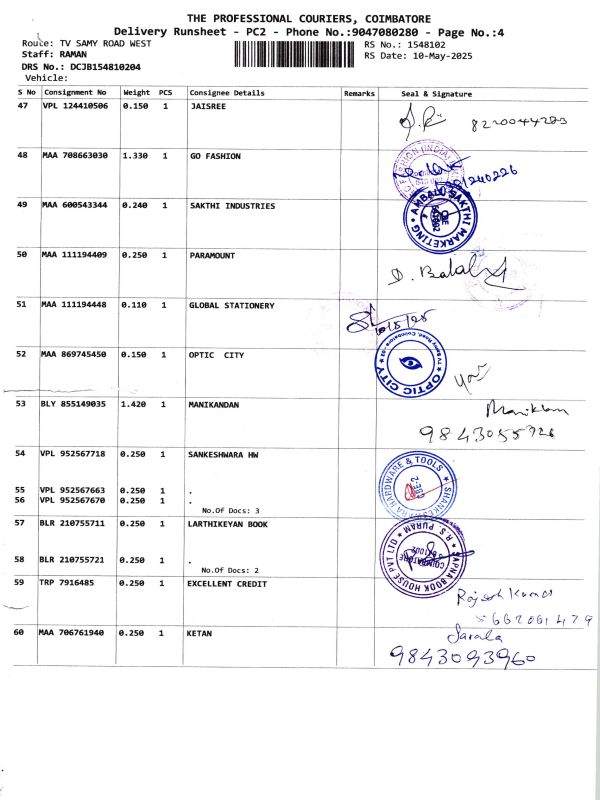 THE PROFESSIONAL COURIERS, COIMBATORE
Delivery Runsheet - PC2 - Phone No.:9047080280 - Page No.:4
Route: TV SAMY ROAD WEST
RS No.: 1548102
Staff: RAMAN
RS Date: 10-May-2025
DRS No.: DCJB154810204
Vehicle:
S No Consignment No Weight PCS Consignee Details Remarks Seal & Signature
47 VPL 124410506 0.150 1 JAISREE
8220044283
48 MAA 708663030 1.330 1 GO FASHION
49 MAA 600543344 0.240 1 SAKTHI INDUSTRIES
AMBAL SAKTHI MARKETING
50 MAA 111194409 0.250 1 PARAMOUNT
D. Balal
51 MAA 111194448 0.110 1 GLOBAL STATIONERY
10/5/25
52 MAA 869745450 0.150 1 OPTIC CITY
OPTIC CITY
53 BLY 855149035 1.420 1 MANIKANDAN
Manikkam
9843055726
54 VPL 952567718 0.250 1 SANKESHWARA HW
SHANKESHWARA HARDWARE & TOOLS
55 VPL 952567663 0.250 1 .
56 VPL 952567670 0.250 1 .
No.Of Docs: 3
57 BLR 210755711 0.250 1 LARTHIKEYAN BOOK
SAPNA BOOK HOUSE PVT LTD
R.S. PURAM
COIMBATORE
58 BLR 210755721 0.250 1 .
No.Of Docs: 2
59 TRP 7916485 0.250 1 EXCELLENT CREDIT
Rajesh Kumar
60 MAA 706761940 0.250 1 KETAN
Sarala
9843093960